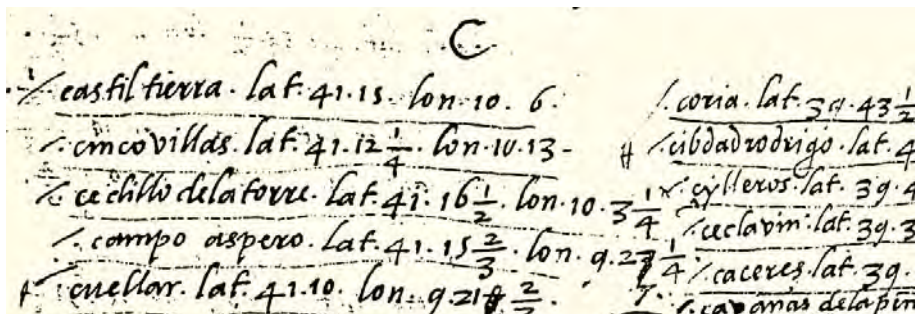 C
castiltierra . lat. 41.15 . lon. 10. 6.
cincovillas . lat. 41.12 1/4 . lon. 10.13
cedillo delatorre . lat. 41. 16 1/2 . lon. 10. 3 1/4
campo aspero . lat. 41. 15 2/3 . lon. 9. 1/4
cuellar. lat. 41.10. lon. 9.
coria . lat. 39. 43 1/2
cibdadrodrigo . lat. 4
cylleros . lat. 39. 4
ceclavin . lat. 39. 3
caceres . lat. 39.
delapin